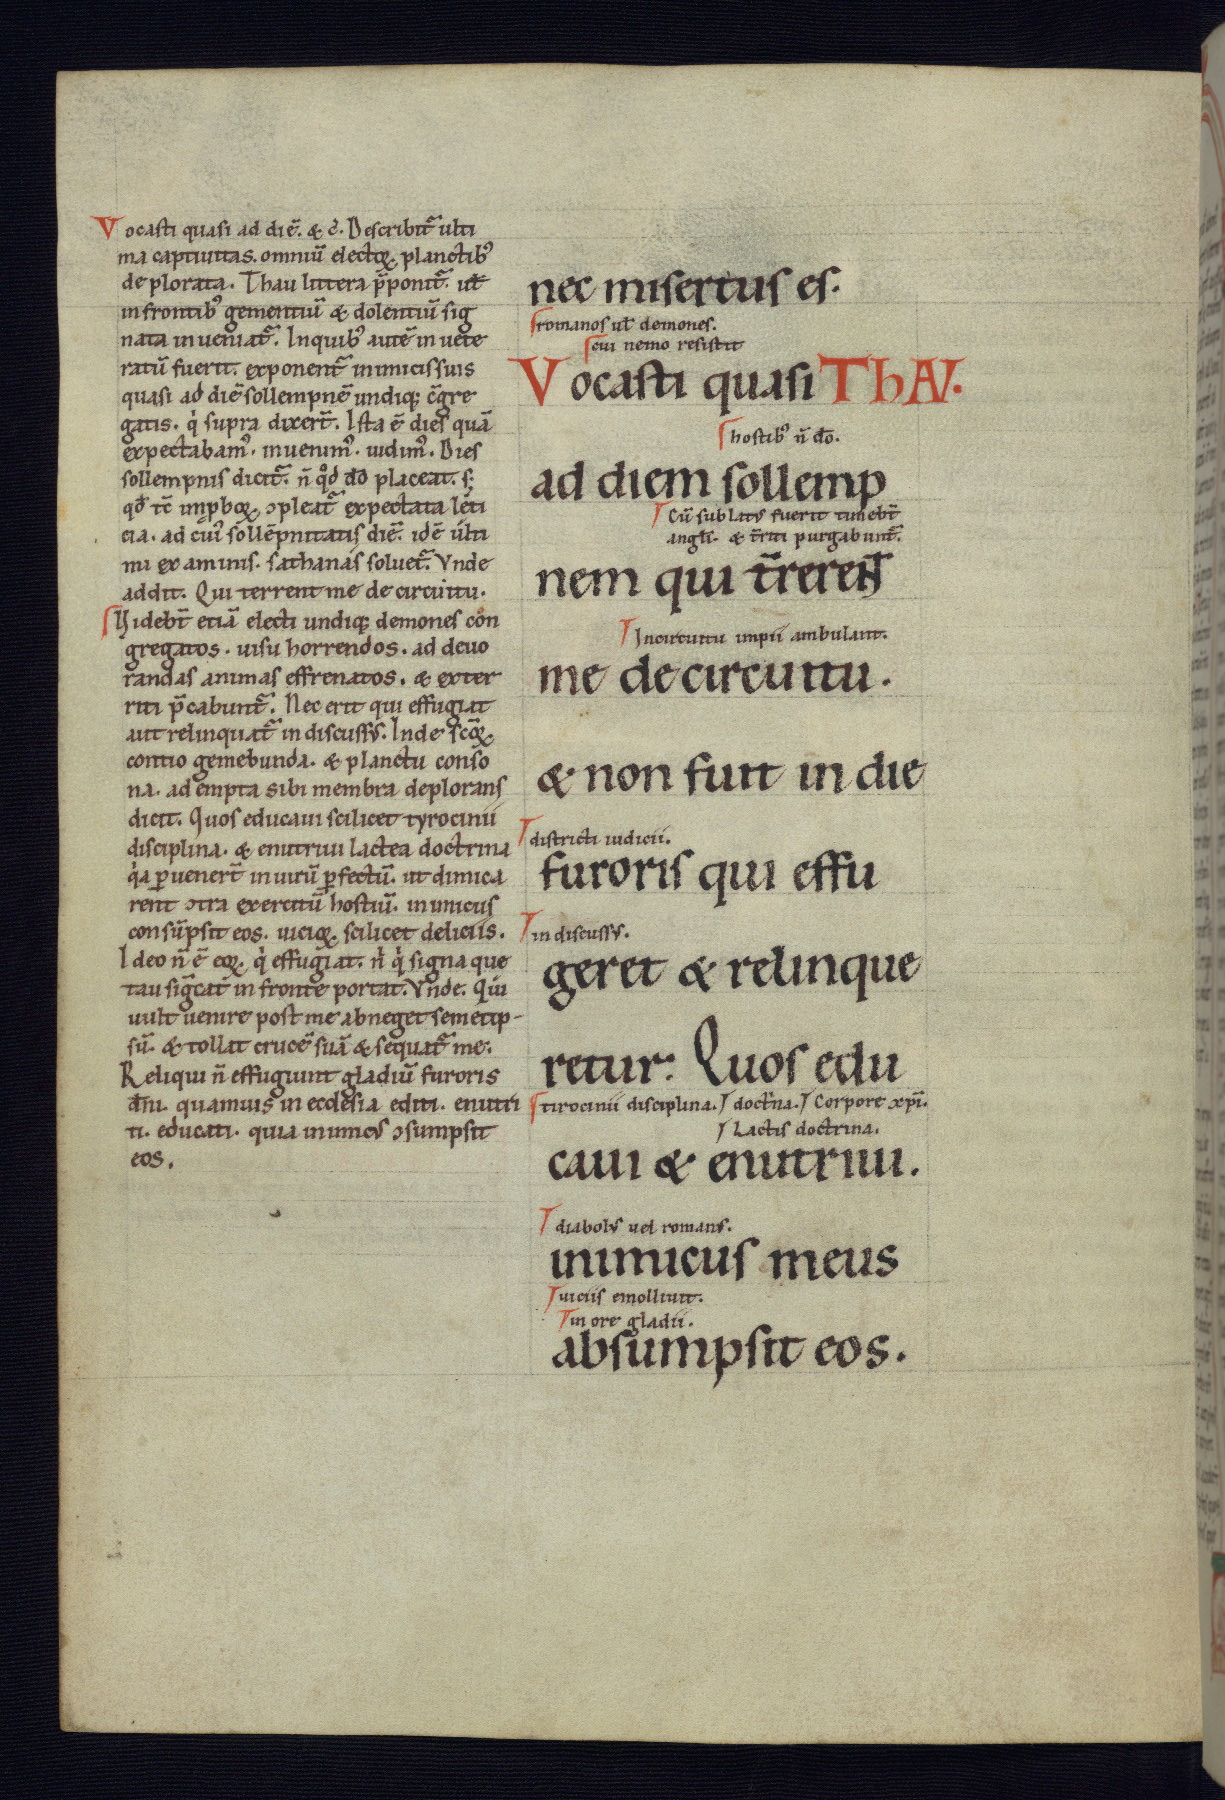 Vocasti quasi ad diē. & c̄. Describit᷑ ulti
ma captiuitas. omniū electoꝝ planctib᷒
deplorata. Thau littera p̄ponit᷑. ut
in frontib᷒ gementiū & dolentiū sig
nata inueniat᷑. In quib᷒ autē inuete
ratū fuerit. exponent᷑ inimicis suis
quasi ad diē sollempnē undiq; c̄gre
gatis. q̍ supra dixer̄t. Ista ē dies quā
expectabam᷒. inuenim᷒. uidim᷒. Dies
sollempnis dicit᷑. n̄ qd̓ dō placeat. s;
qd̄ tc̄ impboꝝ ɔpleat᷑ expectata leti
cia. ad cui᷒ sollēpnitatis diē. idē ulti
mi examinis. sathanas soluet᷑. Vnde
addit. Qui terrent me de circuitu.
Videbt̄ etiā electi undiq; demones con
gregatos. uisu horrendos. ad deuo
randas animas effrenatos. & exter
riti p̄cabunt᷑. Nec erit qui effugiat
aut relinquat᷑ indiscuss᷒. Inde sc̄oꝝ
contio gemebunda. & planctu conso
na. adempta sibi membra deplorans
dicit. Quos educaui scilicet tyrocinii
disciplina. & enutriui lactea doctrina
q̍a ꝑuenert̄ in uirū ꝑfectū. ut dimica
rent ɔtra exercitū hostiū. inimicus
consūpsit eos. uicioꝝ scilicet deliciis.
Ideo n̄ ē eoꝝ q̍ effugiat. n̍ q̍ signa que
tau sig̅cat in fronte portat. Vnde. Qui
uult uenire post me abneget semetip-
sū. & tollat crucē suā & sequat᷑ me.
Reliqui n̄ effugiunt gladiū furoris
dn̄i. quamuis in ecclesia editi. enutri
ti. educati. quia inimic᷒ ɔsumpsit
eos.
nec misertus es.
romanos ul̄ demones.
cui nemo resistit
Vocasti quasi THAV.
hostib᷒ n̄ dō.
ad diem sollemp
Cū sublat᷒ fuerit timebt̄
angl̄i. & t̄riti purgabunt᷑.
nem qui t̄rerent
In circuitu impii ambulant.
me de circuitu.
& non fuit in die
districti iudicii.
furoris qui effu
indiscuss᷒.
geret & relinque
retur: Quos edu
tirocinii disciplina. doct̍na. Corpore xp̄i.
Lactis doctrina.
caui & enutriui.
diabol᷒ uel roman᷒.
inimicus meus
uiciis emolliuit.
in ore gladii.
absumpsit eos.